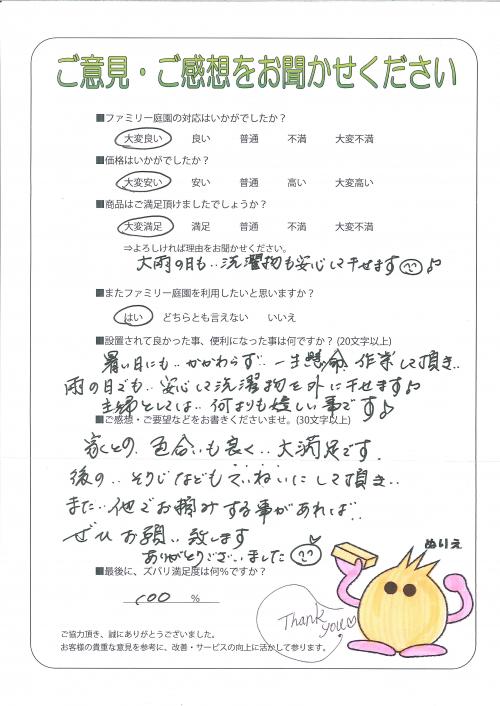 ご意見・ご感想をお聞かせください
■ファミリー庭園の対応はいかがでしたか？
大変良い 良い 普通 不満 大変不満
■価格はいかがでしたか？
大変安い 安い 普通 高い 大変高い
■商品はご満足頂けましたでしょうか？
大変満足 満足 普通 不満 大変不満
⇒よろしければ理由をお聞かせください。
大雨の日も‥洗濯物も安心して干せます♪
■またファミリー庭園を利用したいと思いますか？
はい どちらとも言えない いいえ
■設置されて良かった事、便利になった事は何ですか？(20文字以上)
暑い日にも‥かかわらず‥一生懸命 作業して頂き‥
雨の日でも‥安心して洗濯物を外に干せます♪
主婦としては‥何よりも嬉しい事です♪
■ご感想・ご要望などをお書きくださいませ。(30文字以上)
家との‥色合いも良く‥大満足です。
後の‥そうじなどもていねいにして頂き‥
また‥他でお頼みする事があれば‥
ぜひお願い致します
ありがとうございました
ぬりえ
■最後に、ズバリ満足度は何％ですか？
100 ％
Thank you♡
ご協力頂き、誠にありがとうございました。
お客様の貴重な意見を参考に、改善・サービスの向上に活かして参ります。